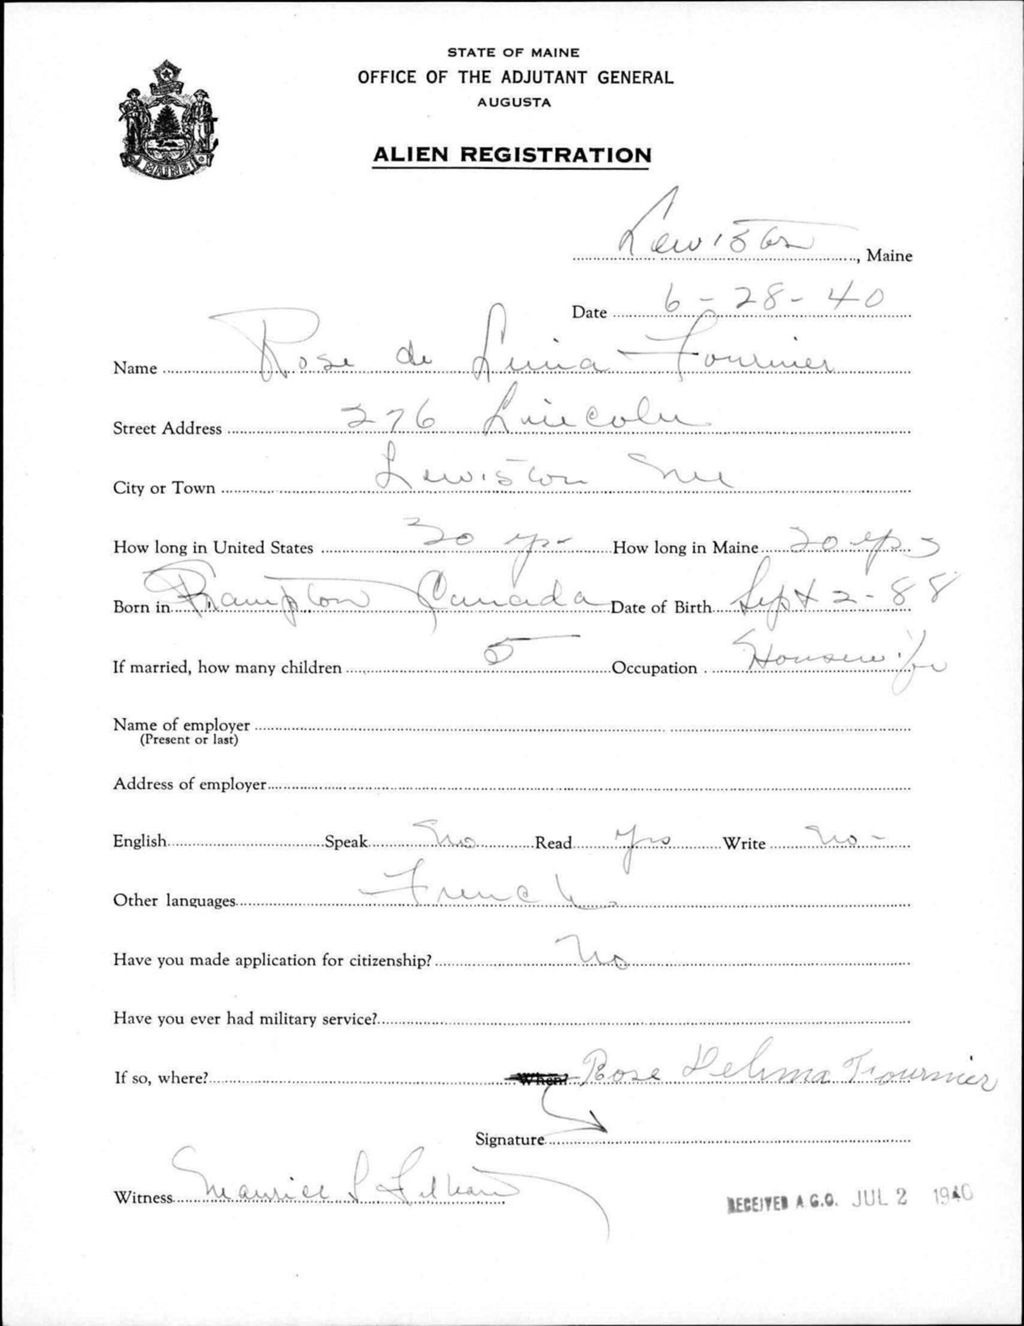 STATE OF MAINE
OFFICE OF THE ADJUTANT GENERAL
AUGUSTA
ALIEN REGISTRATION
MAINE
Lewiston, Maine
Date 6-28-40
Name Rose de Luina Fournier
Street Address 276 Lincoln
City or Town Lewiston Me
How long in United States 20 yrs How long in Maine 20 yrs
Born in Frampton Canada Date of Birth Sept 2-88
If married, how many children 5 Occupation Housewife
Name of employer
(Present or last)
Address of employer
English Speak No Read Yes Write No-
Other languages French
Have you made application for citizenship? No
Have you ever had military service?
If so, where? When? Rose Delima Fournier
Signature
Witness Maurice L
RECEIVED A.G.O. JUL 2 1940